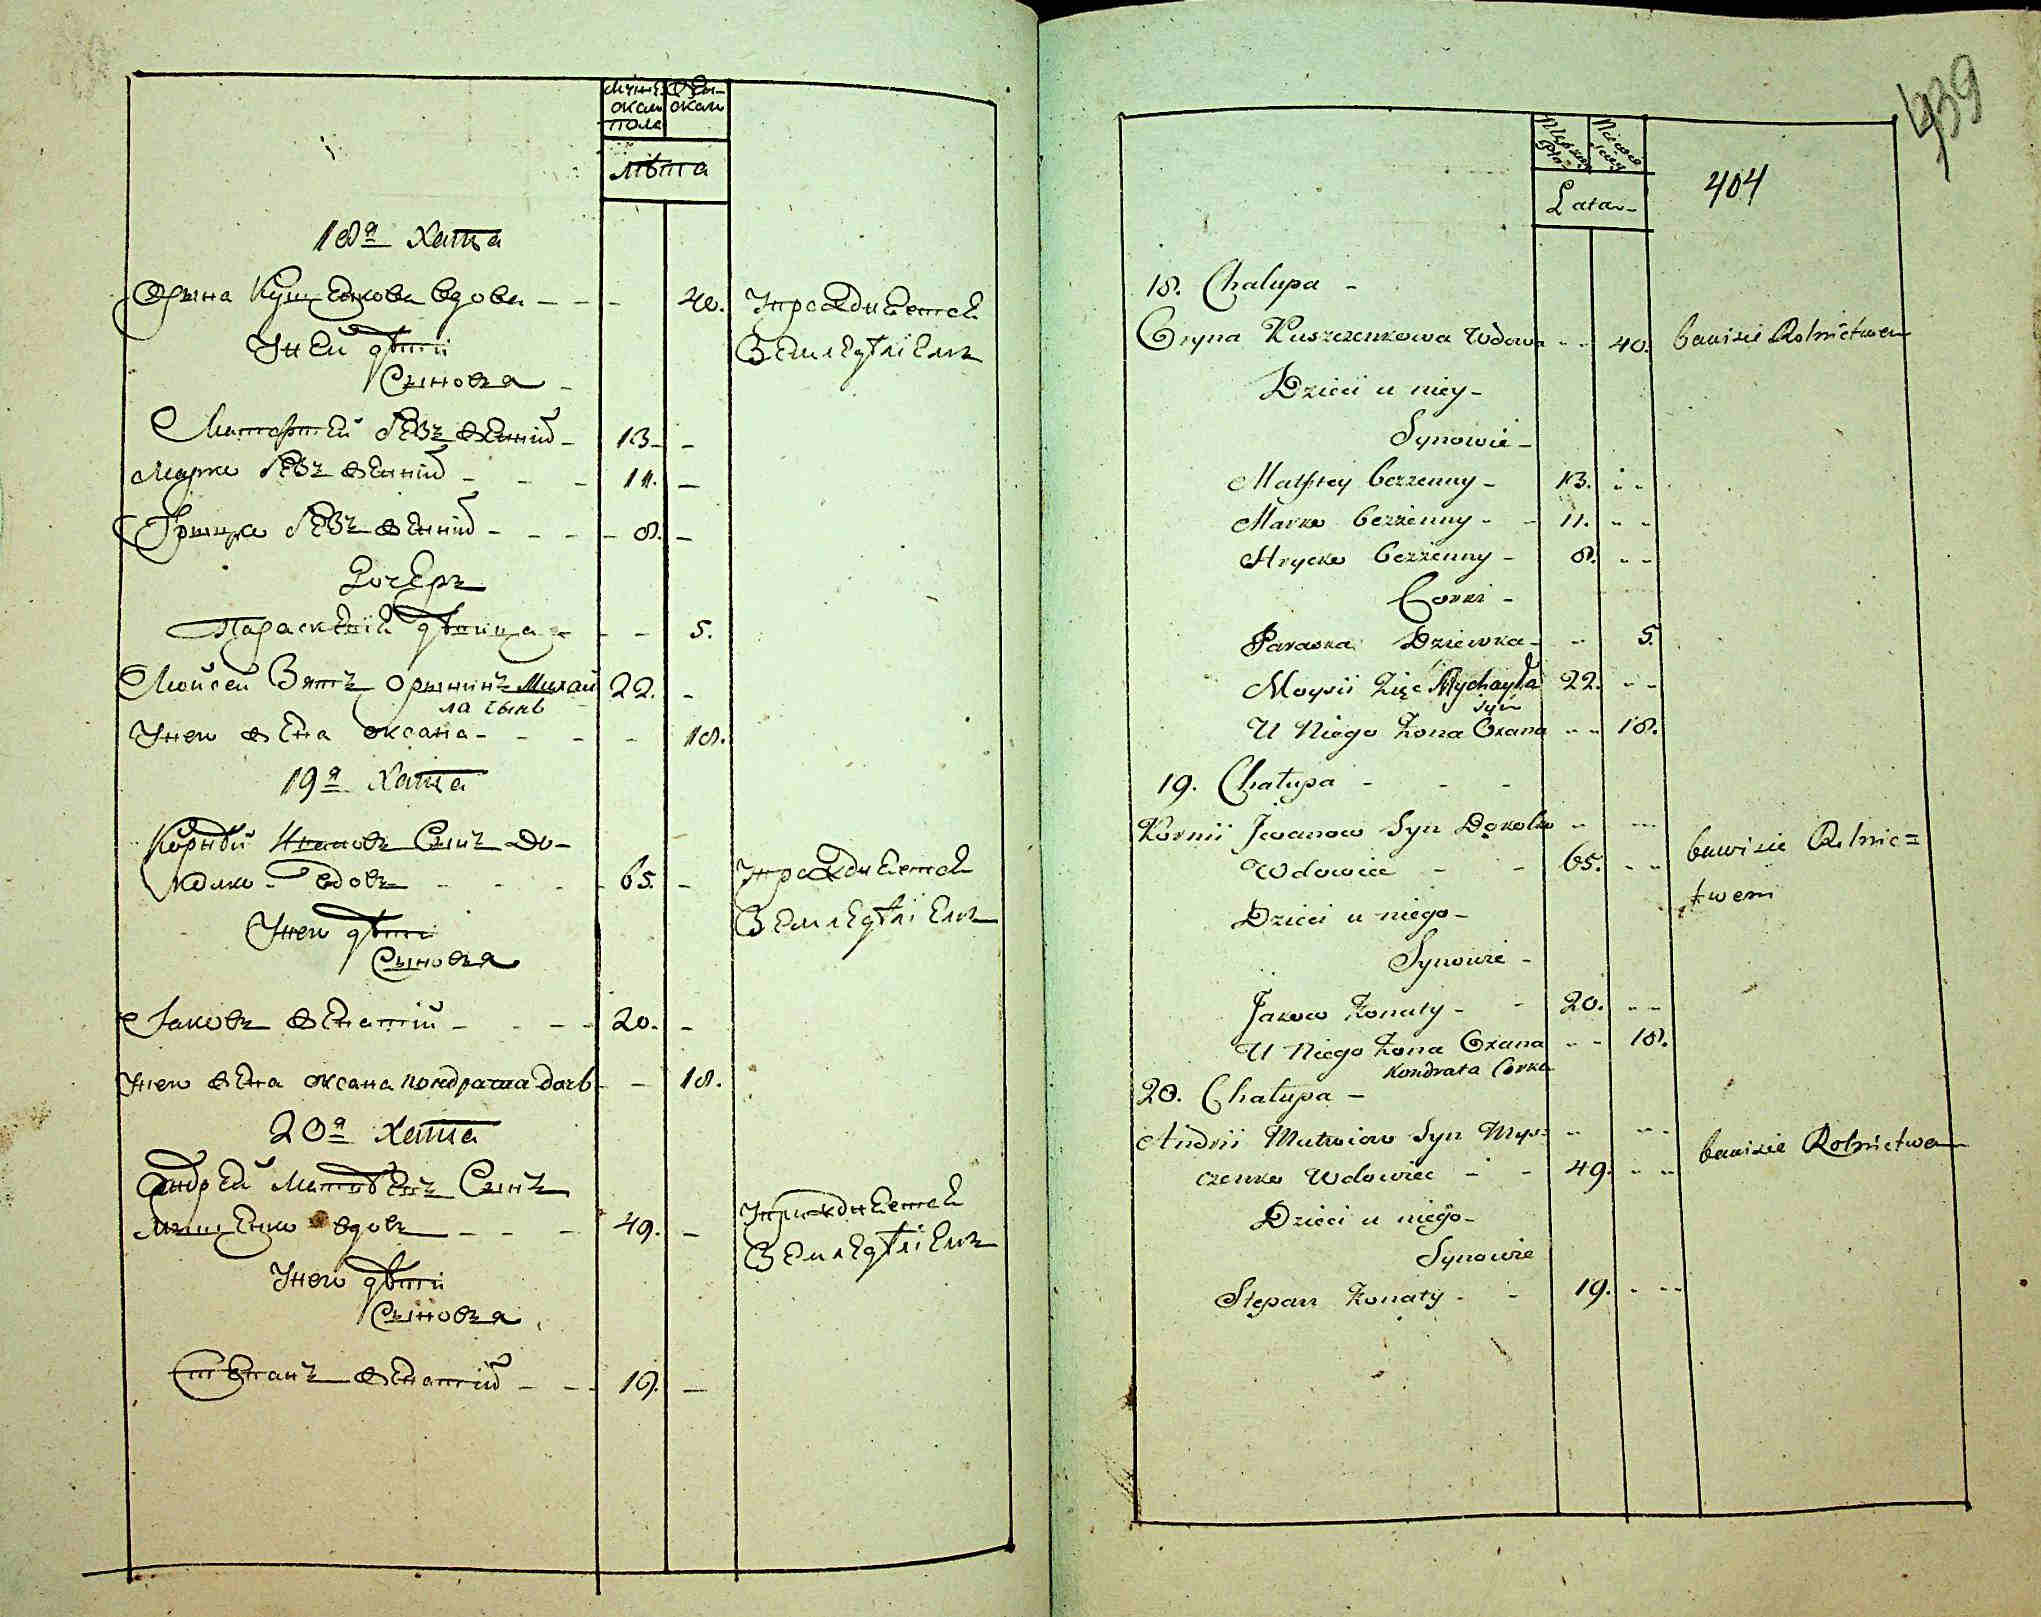 мужескаго пола
женскаго
лѣта
18я хата
Орына Кущенкова вдова - - - 40. Упражняется
У ней дѣти Земледѣліемъ
Сыновья -
Матфей безженній - 13 - -
Марко безженній - - - 11. -
Грицко безженній - - - - 8. -
Дочерь
Параскевія дѣвица - - - 5.
Мойсей Зять Орынинъ Михай 22. -
ла сынъ
У него жена Оксана - - - - 18.
19я хата
Корнѣй Ивановъ Сынъ До-
колко вдовъ - - - - 65. - Упражняется
У него дѣти Земледѣліемъ
Сыновья
Яковъ женатій - - - - 20. -
У него жена Оксана Кондрата дочь - - 18.
20я хата
Андрей Матвѣевъ Сынъ
Мищенко вдовъ - - - 49. - Упражняется
У него дѣти Земледѣліемъ
Сыновья
Степанъ женатій - - - 19. -
439
404
Męzkiey Płci
Lata -
18. Chałupa -
Oryna Kuszczenkowa Wdowa - - 40. bawi sie Rolnictwem
Dzieci u niey -
Synowie -
Matfiey bezzenny - 13. - -
Marko bezzenny - - 11. - -
Hrycko bezzenny - 8. - -
Corki -
Paraska Dziewka - - 5.
Moysii Zięć Mychayła 22. - -
Syn
U Niego Żona Oxana - - 18.
19. Chałupa - - -
Kornii Jwanow Syn Dokolko - ---
Wdowiec - - 65. - - bawi sie Rolnic=
Dzieci u niego - twem
Synowie -
Jakow Żonaty - - 20. - -
U Niego Żona Oxana - - 18.
Kondrata Corka
20. Chałupa -
Andrii Matwiow Syn Mys= - ---
czenko Wdowiec - - 49. - - bawi sie Rolnictwem
Dzieci u niego -
Synowie
Stepan Żonaty - - 19. - --